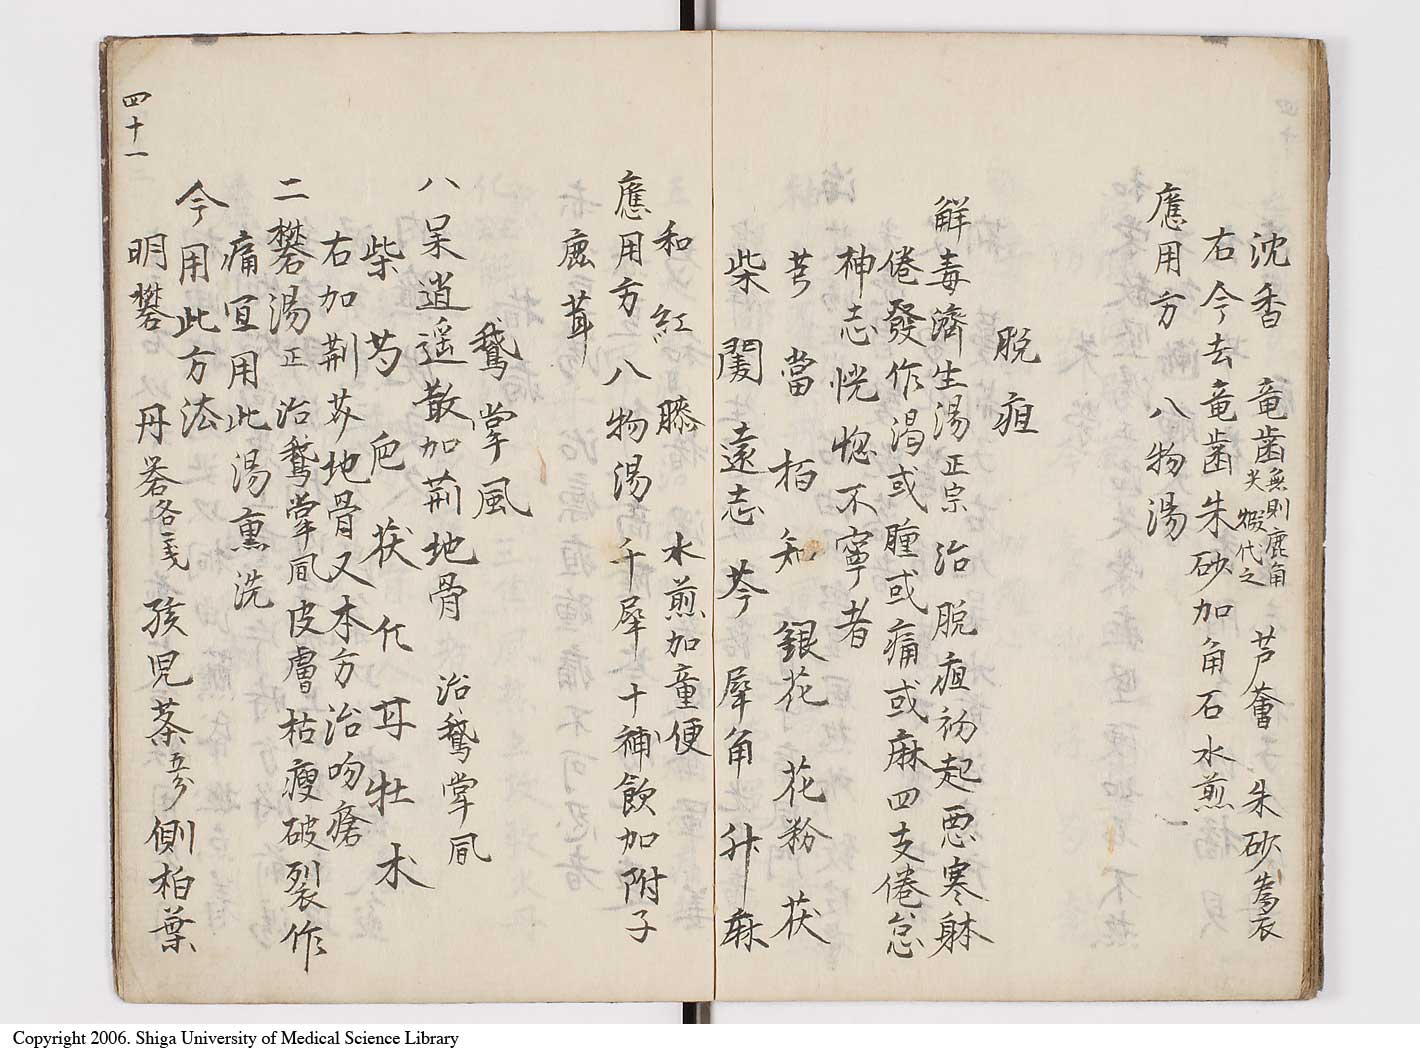 沈香 竜歯無則鹿角尖煅代之 芦薈 朱砂為衣
右今去竜歯朱砂加角石水煎
應用方 八物湯
脱疽
解毒濟生湯正宗 治脱疽初起悪寒躰
倦發作渇或腫或痛或麻四支倦怠
神志恍惚不寧者
芎 當 栢 知 銀花 花粉 茯
柴 遠志 芩 犀角 升麻
和 紅 膝 水煎加童便
應用方 八物湯 千犀 十補飲加附子
鹿茸
鵞掌風
八 呆逍遥散加荆地骨 治鵞掌凬
柴 芍 皀 茯 耳 牡 术
右加荆芥地骨又本方治吻瘡
二 礬湯正 治鵞掌凬皮膚枯瘦破裂作
痛宜用此湯熏洗
今用此方法
明礬 丹礬各戔 孩児茶五分 側柏葉
四十一
Copyright 2006. Shiga University of Medical Science Library